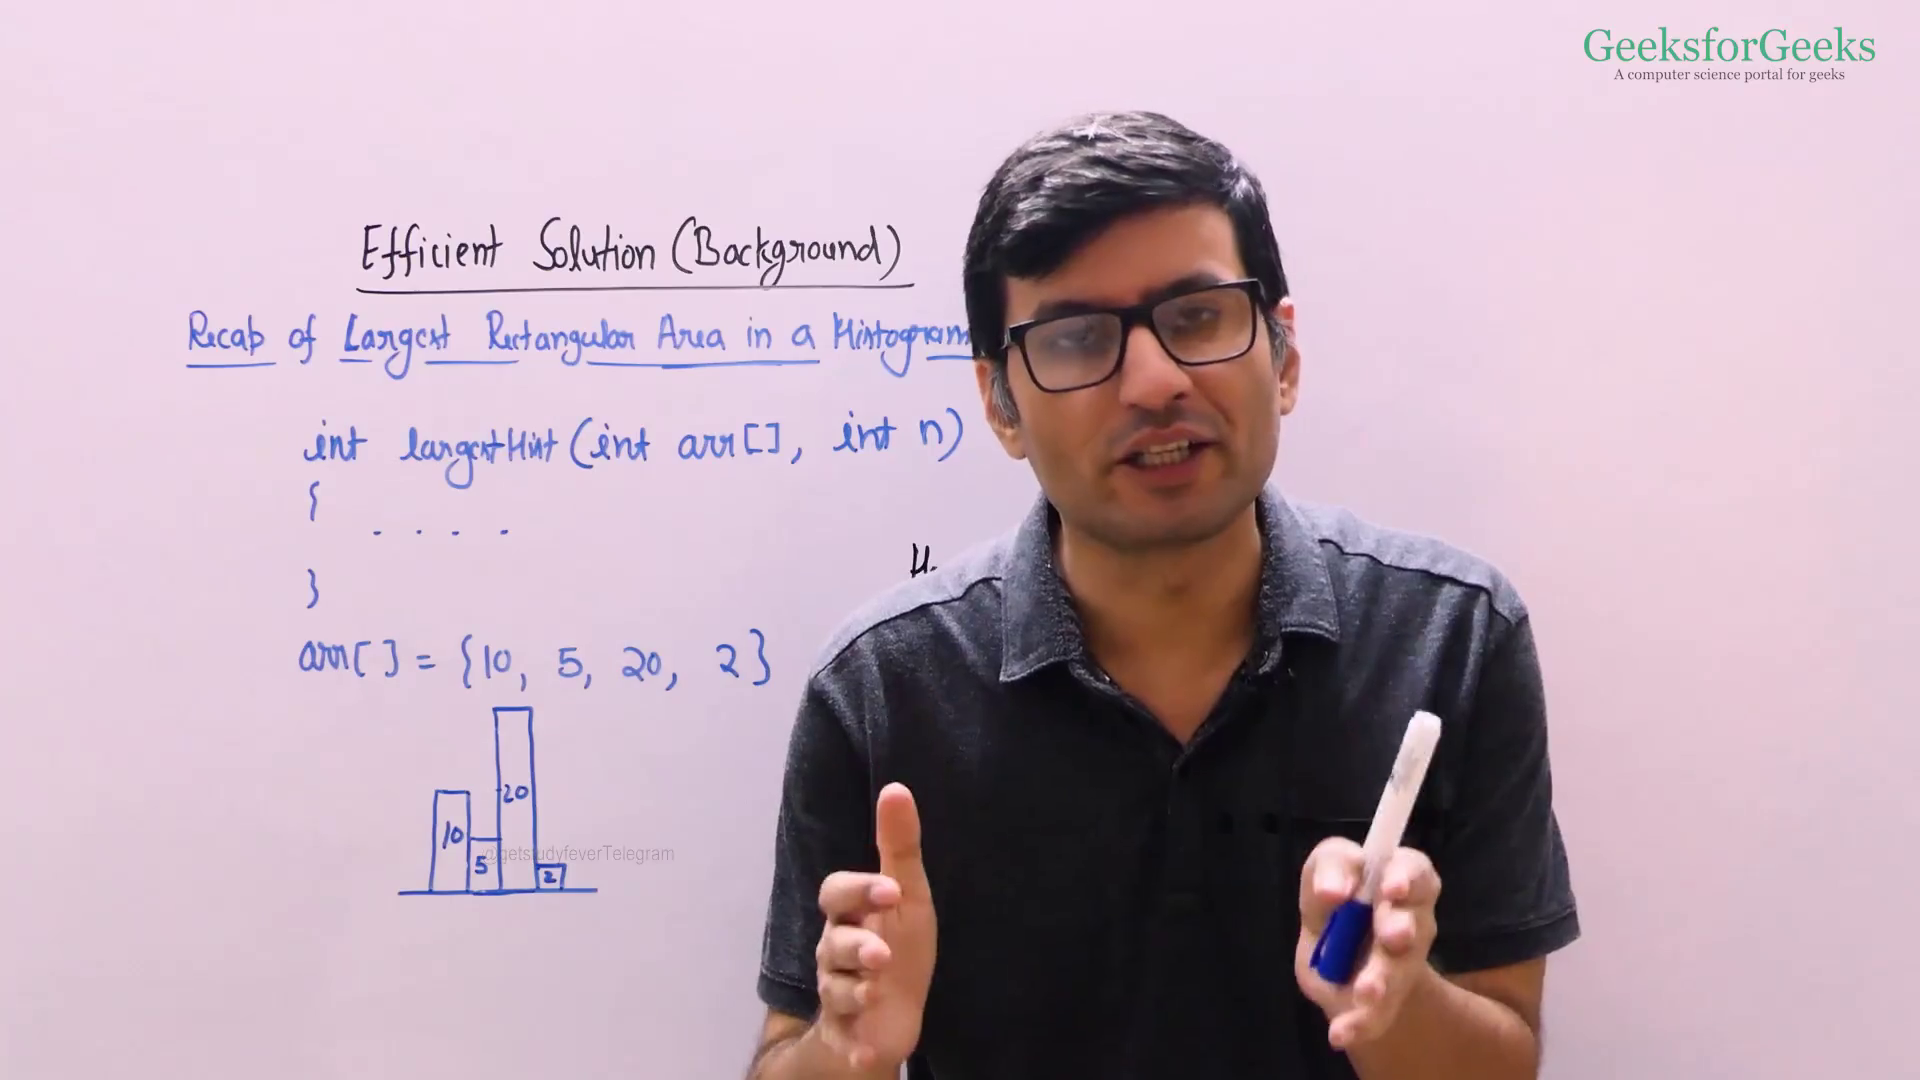 GeeksforGeeks
A computer science portal for geeks
Efficient Solution (Background)
Recap of Largest Rectangular Area in a Histogram
int largestHist (int arr[], int n)
{
. . . .
}
arr[] = {10, 5, 20, 2}
20
10
5
2
@getstudyfeverTelegram